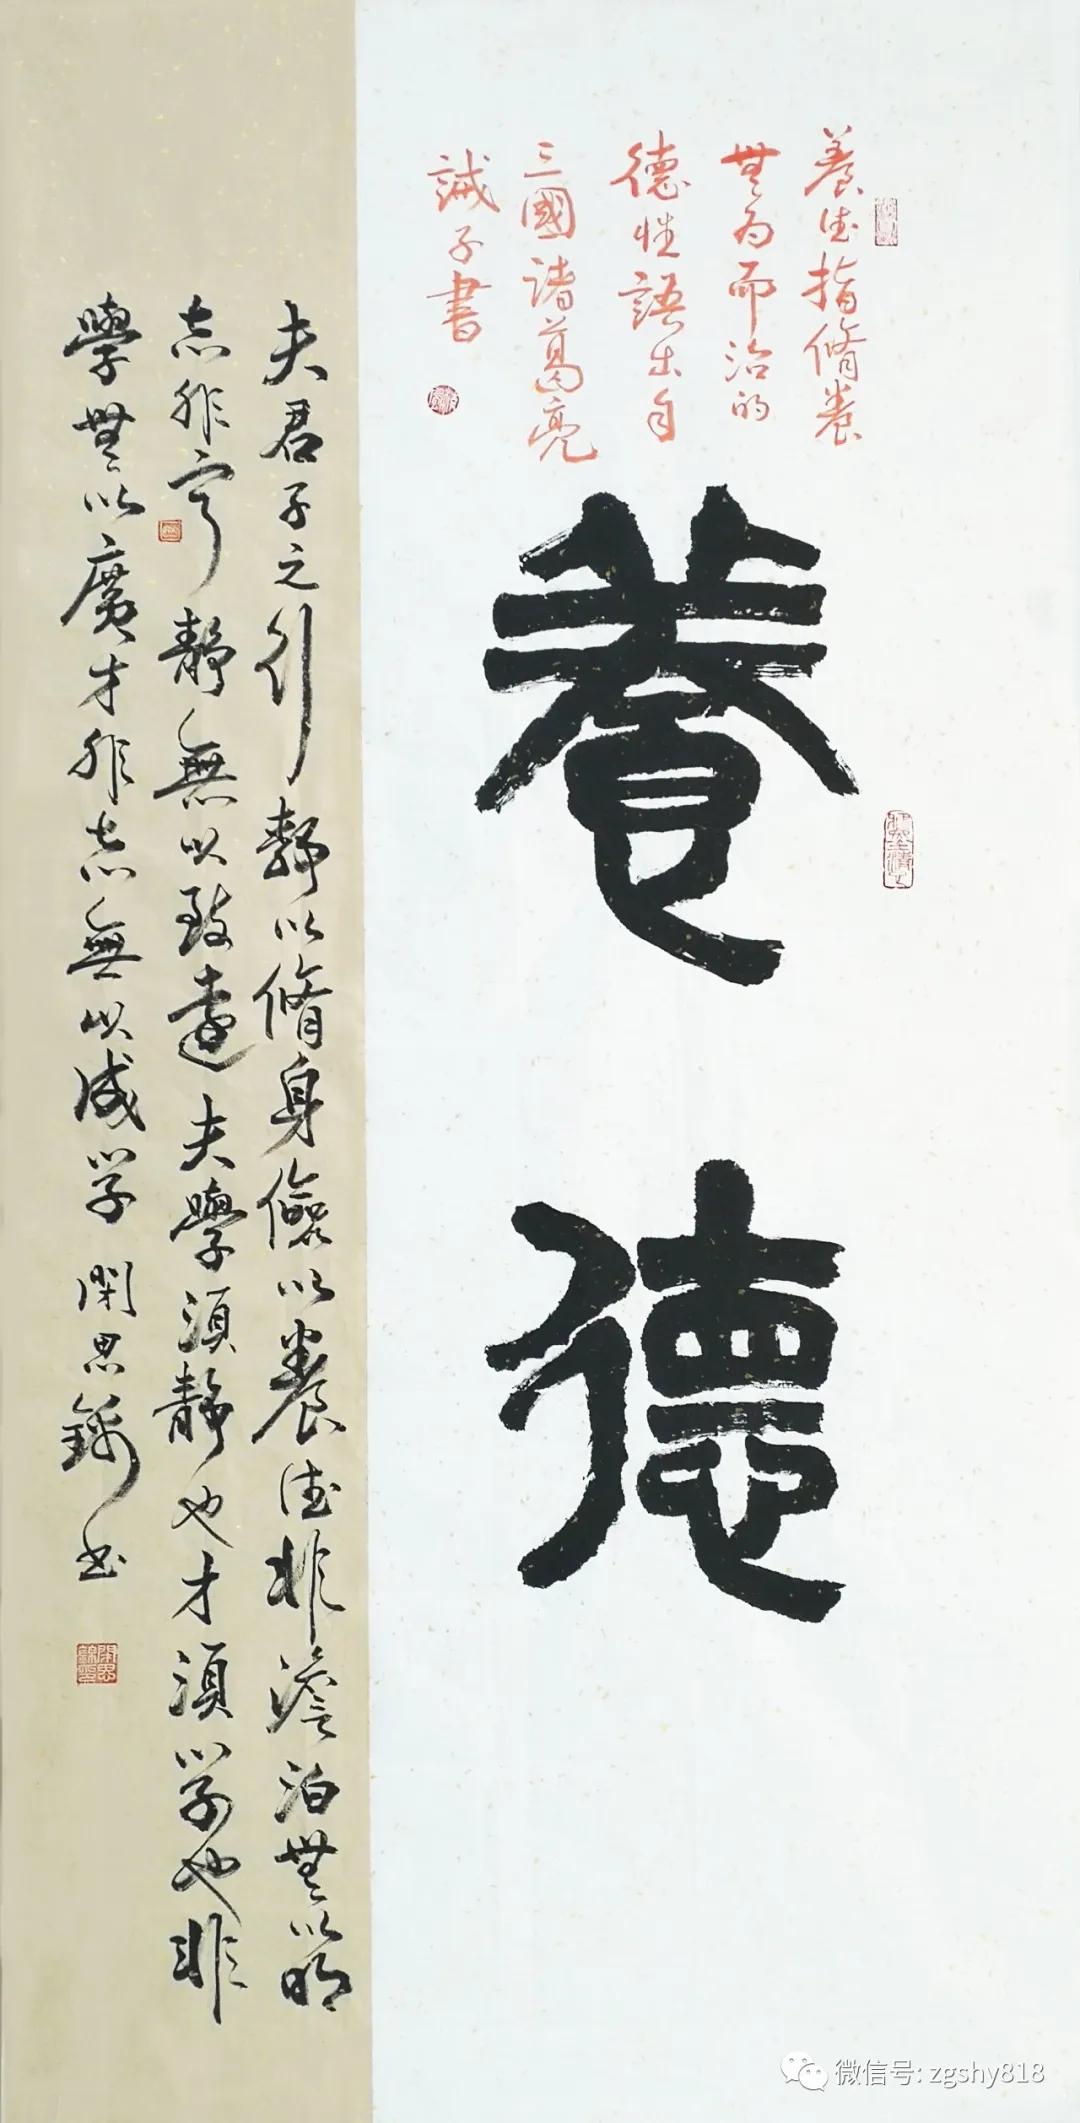 養德指脩養
無為而治的
德性語出自
三國諸葛亮
誡子書
養德
夫君子之行靜以脩身儉以養德非澹泊無以明
志非寧靜無以致遠夫學須靜也才須學也非
學無以廣才非志無以成學 閑思錦书
微信号: zgshy818